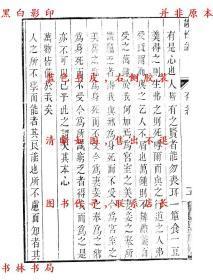 黑白影印 并非原本
有是心也人皆有之賢者能勿喪耳一簞食一豆
羹得之則生弗得則死嘑爾而與之行道之人弗
受蹴爾而與之乞人不屑也萬鍾則不辨禮義而
受之萬鍾於我何加焉為宮室之美妻妾之奉
為身死而不受今為宮室之美為之
為身死而不受今為妻妾之奉為之
身死而不受今為所識窮乏者得我而為之是
亦不可以已乎此之謂失其本心
萬物皆備於我矣
人之所不學而能者其良能也所不慮而知者其
右侧胶装
清晰如图 售出不退
图书代寻 联系店长
书林书局